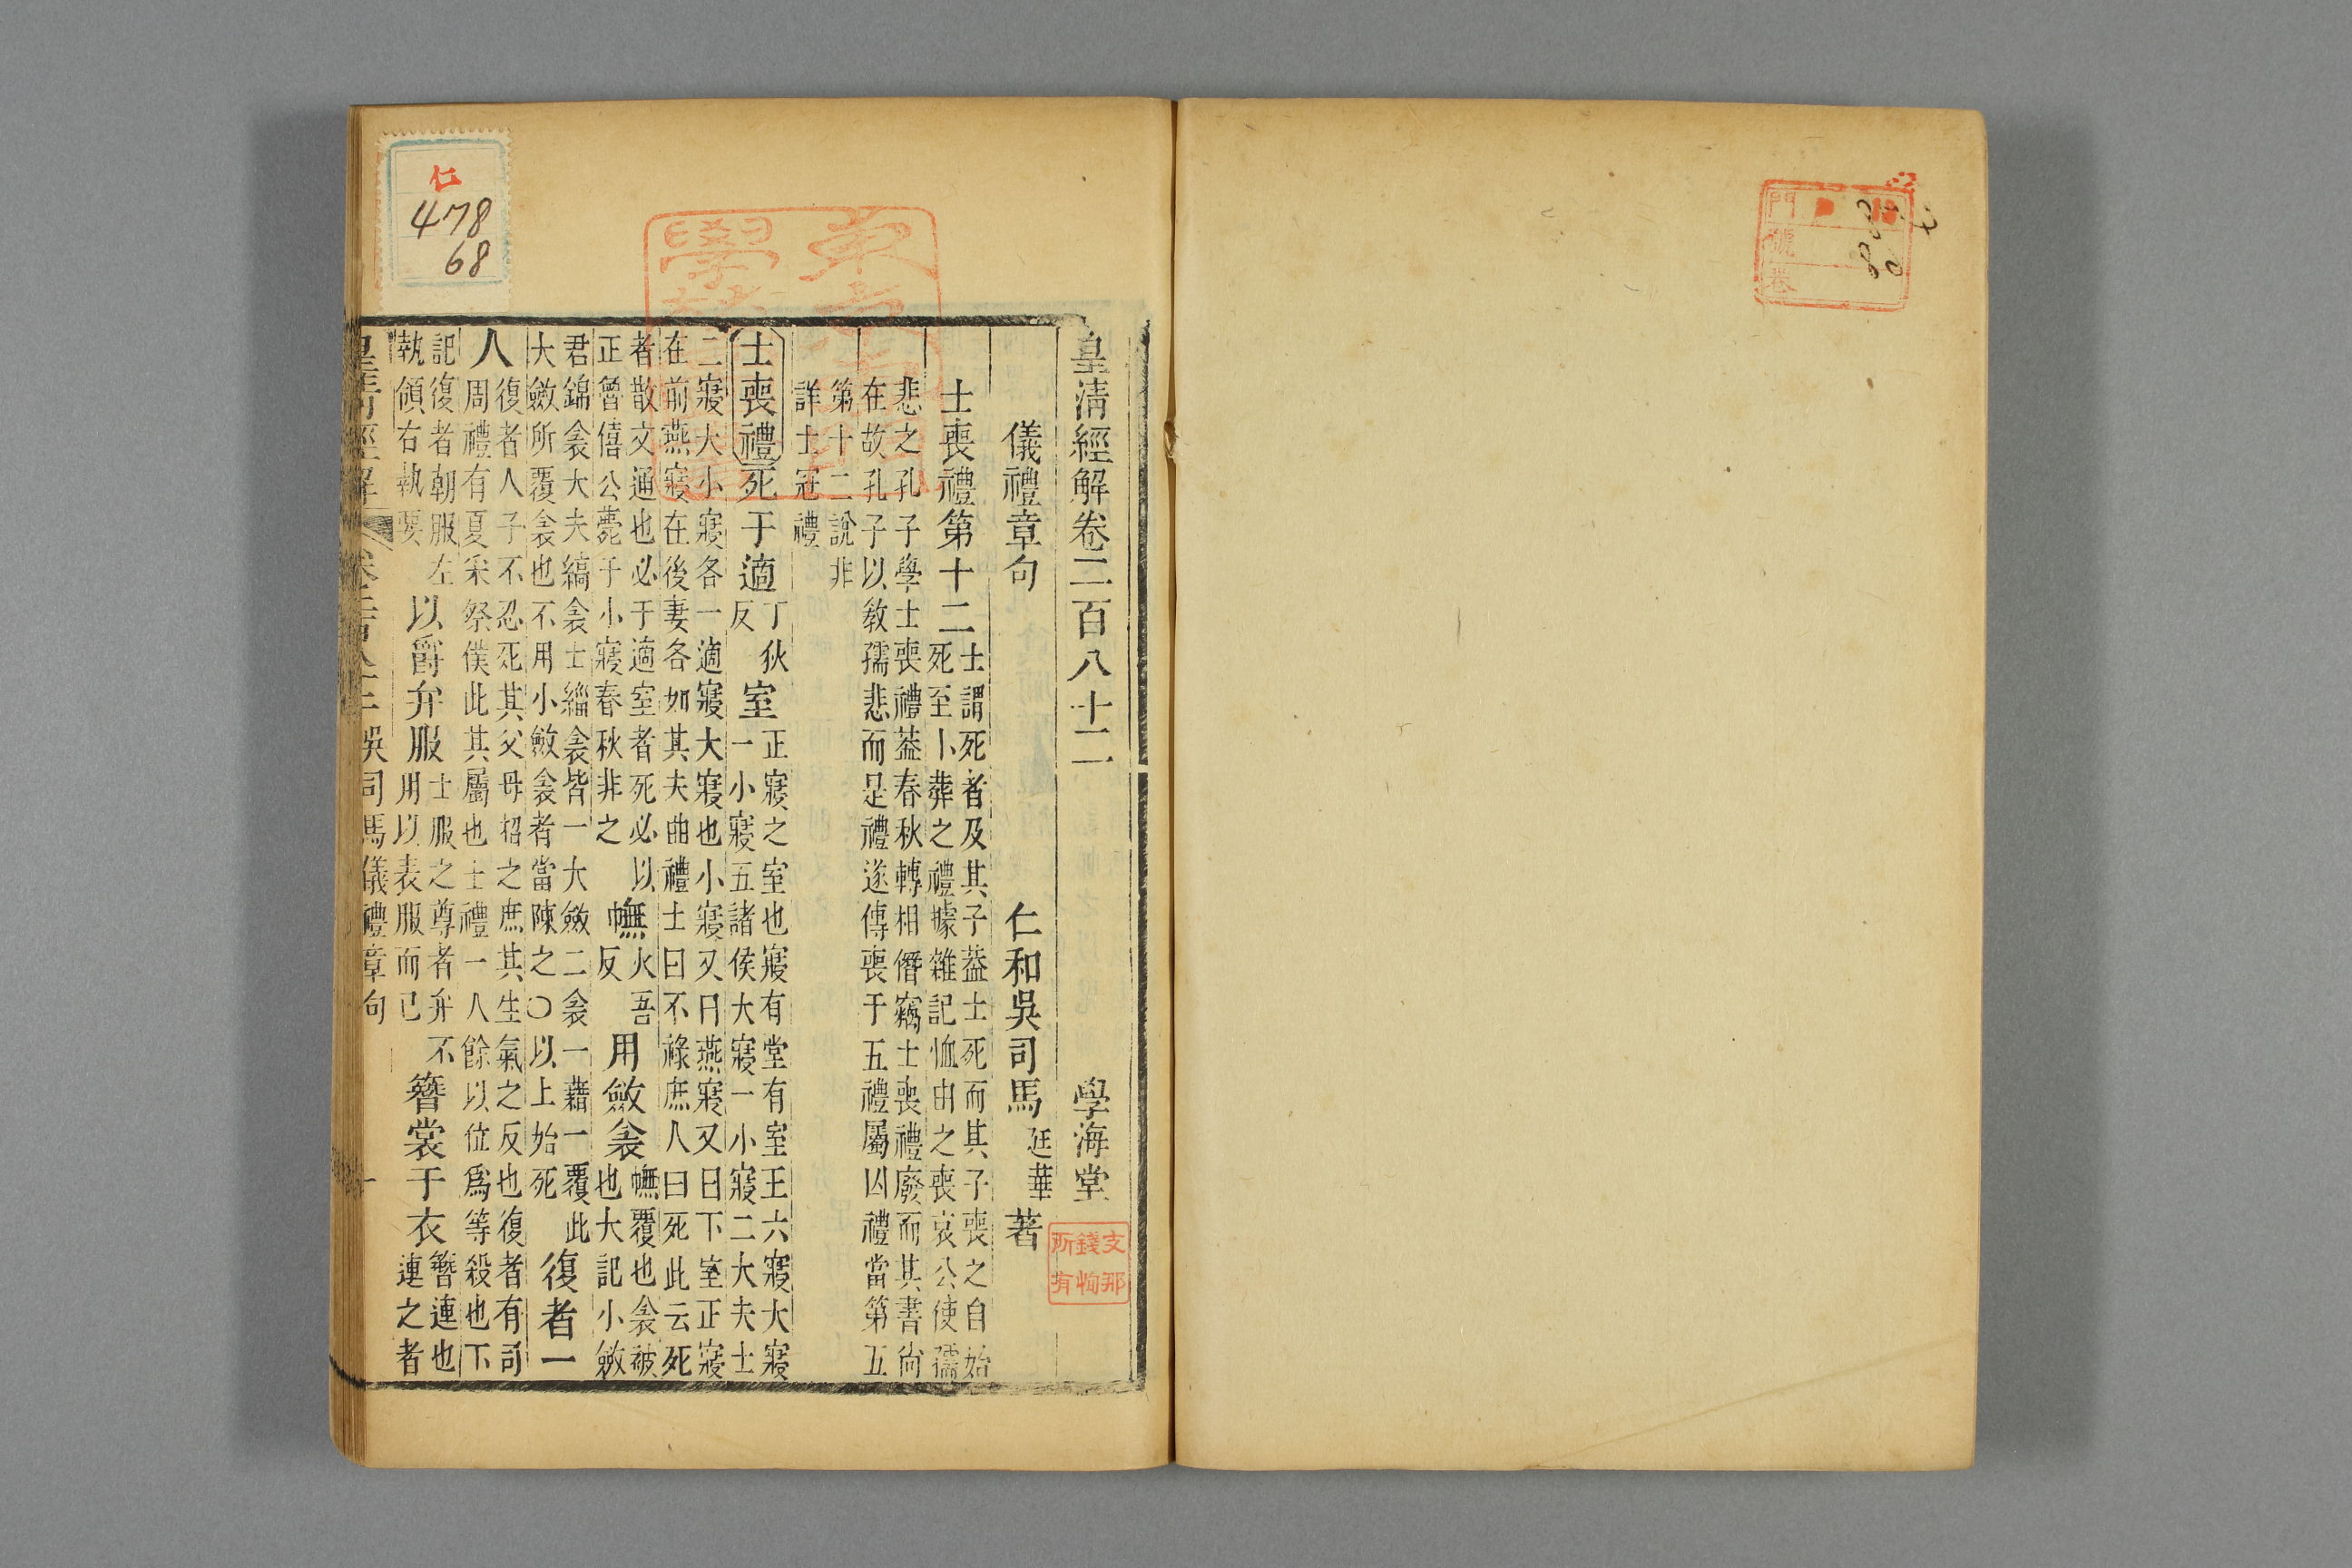 皇清經解卷二百八十二 學海堂
儀禮章句 仁和吳司馬廷華著
士喪禮第十二
士謂死者及其子葢士死而其子喪之自始
死至卜葬之禮據雜記恤由之喪哀公使孺
悲之孔子學士喪禮葢春秋轉相僭竊士喪禮廢而其書尙
在故孔子以敎孺悲而是禮遂傳喪于五禮屬凶禮當第五
第十二說非
詳士冠禮
士喪禮死于適
丁狄
反
室
正寢之室也寢有堂有室王六寢大寢
一小寢五諸侯大寢一小寢二大夫士
二寢大小寢各一適寢大寢也小寢又曰燕寢又曰下室正寢
在前燕寢在後妻各如其夫曲禮士曰不祿庶人曰死此云死
者散文通也必于適室者死必以
正魯僖公薨于小寢春秋非之
幠
火吾
反
用斂衾
幠覆也衾被
也大記小斂
君錦衾大夫縞衾士緇衾皆一大斂二衾一藉一覆此
大斂所覆衾也不用小斂衾者當陳之〇以上始死
復者一
人
復者人子不忍死其父母招之庶其生氣之反也復者有司
周禮有夏采祭僕此其屬也士禮一人餘以位爲等殺也下
記復者朝服左
執領右執要
以爵弁服
士服之尊者弁不
用以表服而已
簪裳于衣
簪連也
連之者
吳司馬儀禮章句
一
仁
478
68
支那
錢恂
所有
門
號
卷